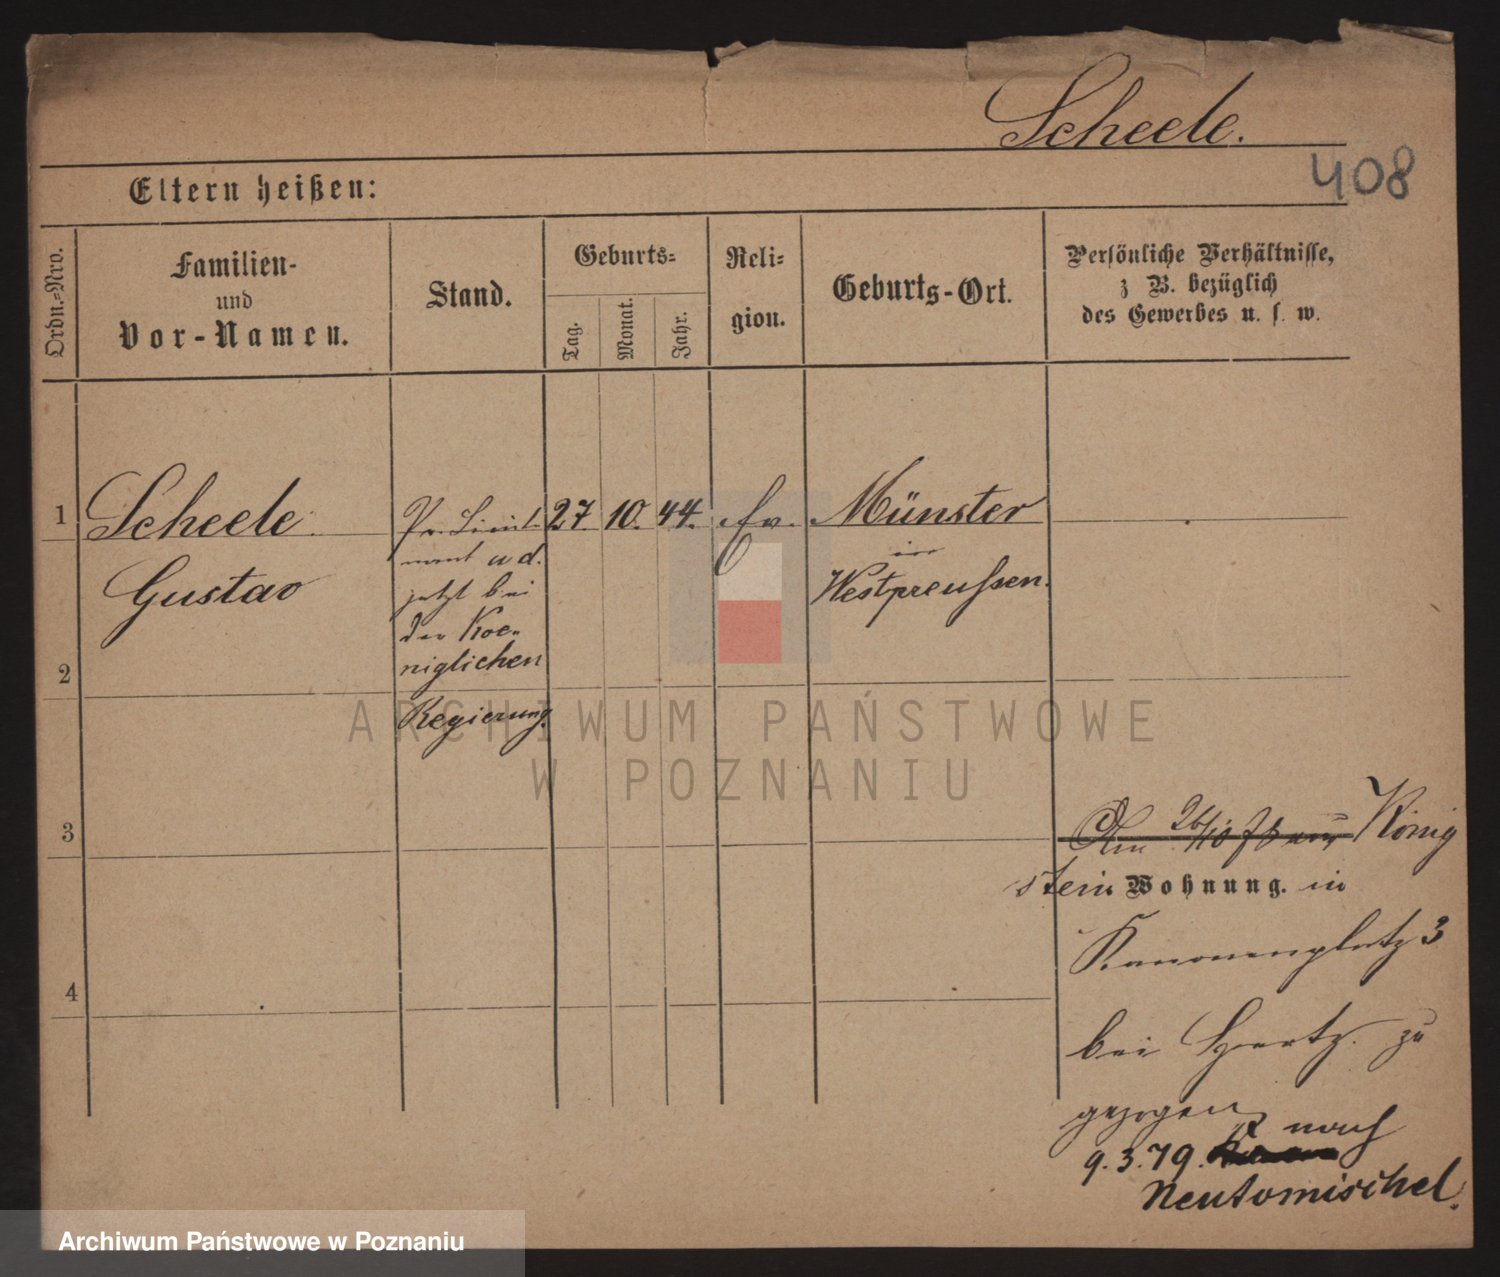 Scheele.
408
Eltern heißen:
Ordn.=Nro.
Familien-
und
Vor-Namen.
Stand.
Geburts=
Tag.
Monat.
Jahr.
Reli=
gion.
Geburts-Ort.
Persönliche Verhältnisse,
z B. bezüglich
des Gewerbes u. s. w.
1
Scheele
Gustav
Pr. Lieut-
nant a d.
jetzt bei
der Koe-
niglichen
Regierung.
27
10.
44.
Ev.
Münster
in
Westpreussen.
2
3
4
Am 26/10 78 aus König
stein Wohnung. in
Kanonenplatz 3
bei Hertz. zu
gezogen
9.3.79. nach
Neutomischel.
ARCHIWUM PAŃSTWOWE
W POZNANIU
Archiwum Państwowe w Poznaniu